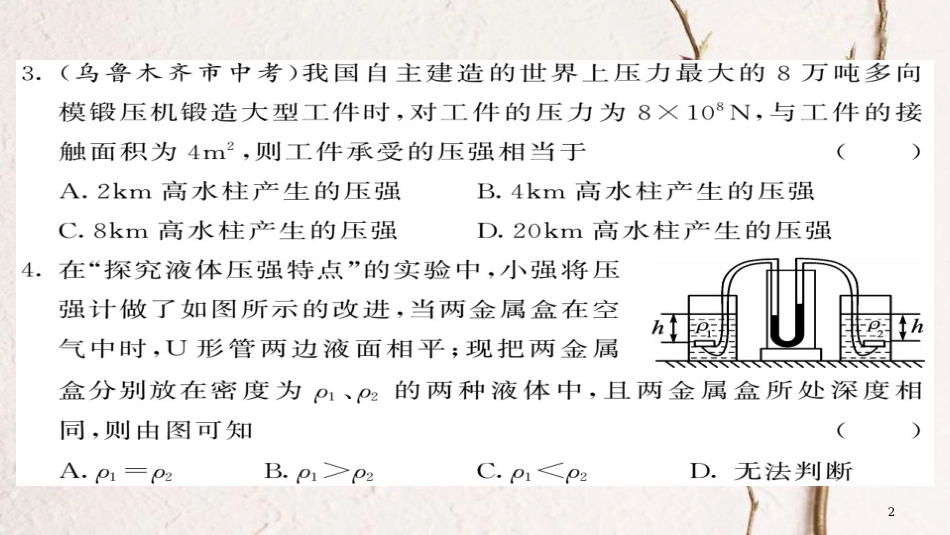 3. (乌鲁木齐市中考)我国自主建造的世界上压力最大的 8 万吨多向
模锻压机锻造大型工件时,对工件的压力为 8×10⁸N,与工件的接
触面积为 4m²,则工件承受的压强相当于 ( )
A. 2km 高水柱产生的压强 B. 4km 高水柱产生的压强
C. 8km 高水柱产生的压强 D. 20km 高水柱产生的压强
4. 在“探究液体压强特点”的实验中,小强将压
强计做了如图所示的改进,当两金属盒在空
气中时,U 形管两边液面相平;现把两金属
盒分别放在密度为 ρ₁、ρ₂ 的两种液体中,且两金属盒所处深度相
同,则由图可知 ( )
A. ρ₁=ρ₂ B. ρ₁>ρ₂ C. ρ₁<ρ₂ D. 无法判断
h ρ₁ ρ₂ h
2